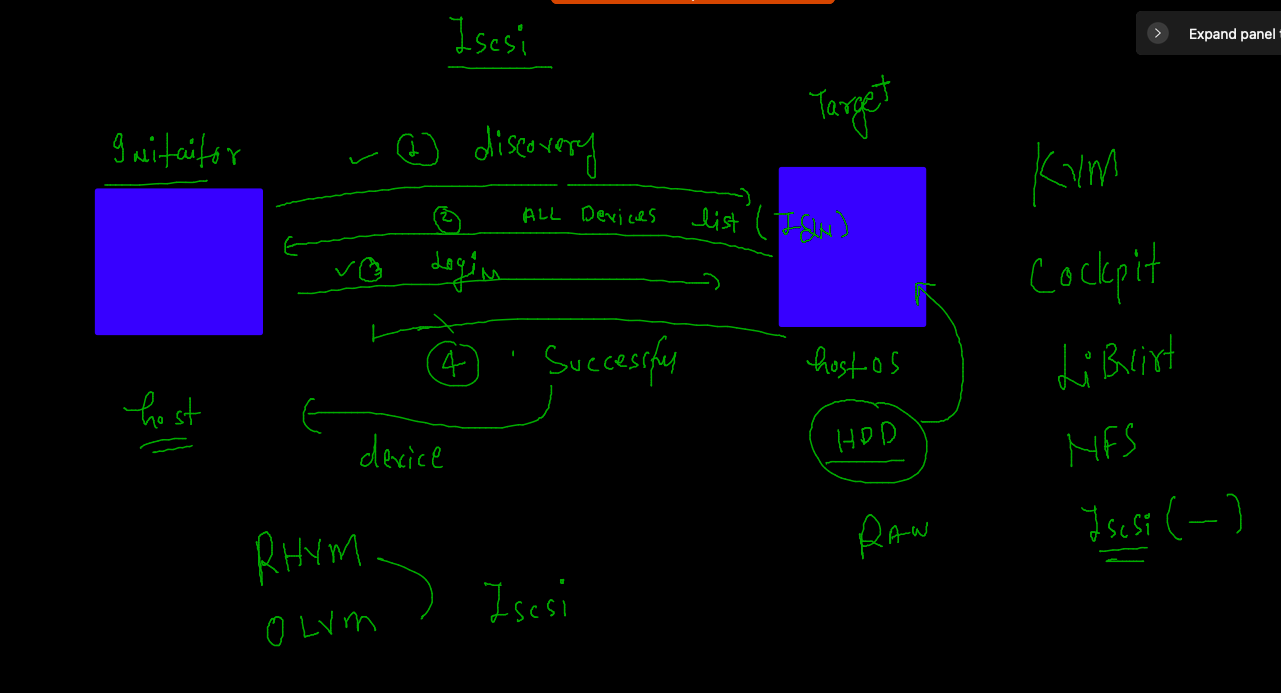 Iscsi
Expand panel
Target
Initaitor
✓ ① discovery
② ALL Devices list (IQN)
✓ ③ Login
④ Successfy
host
device
host os
HDD
RAW
KVM
Cockpit
LiBvirt
NFS
Iscsi (—)
RHVM
OLVM
Iscsi